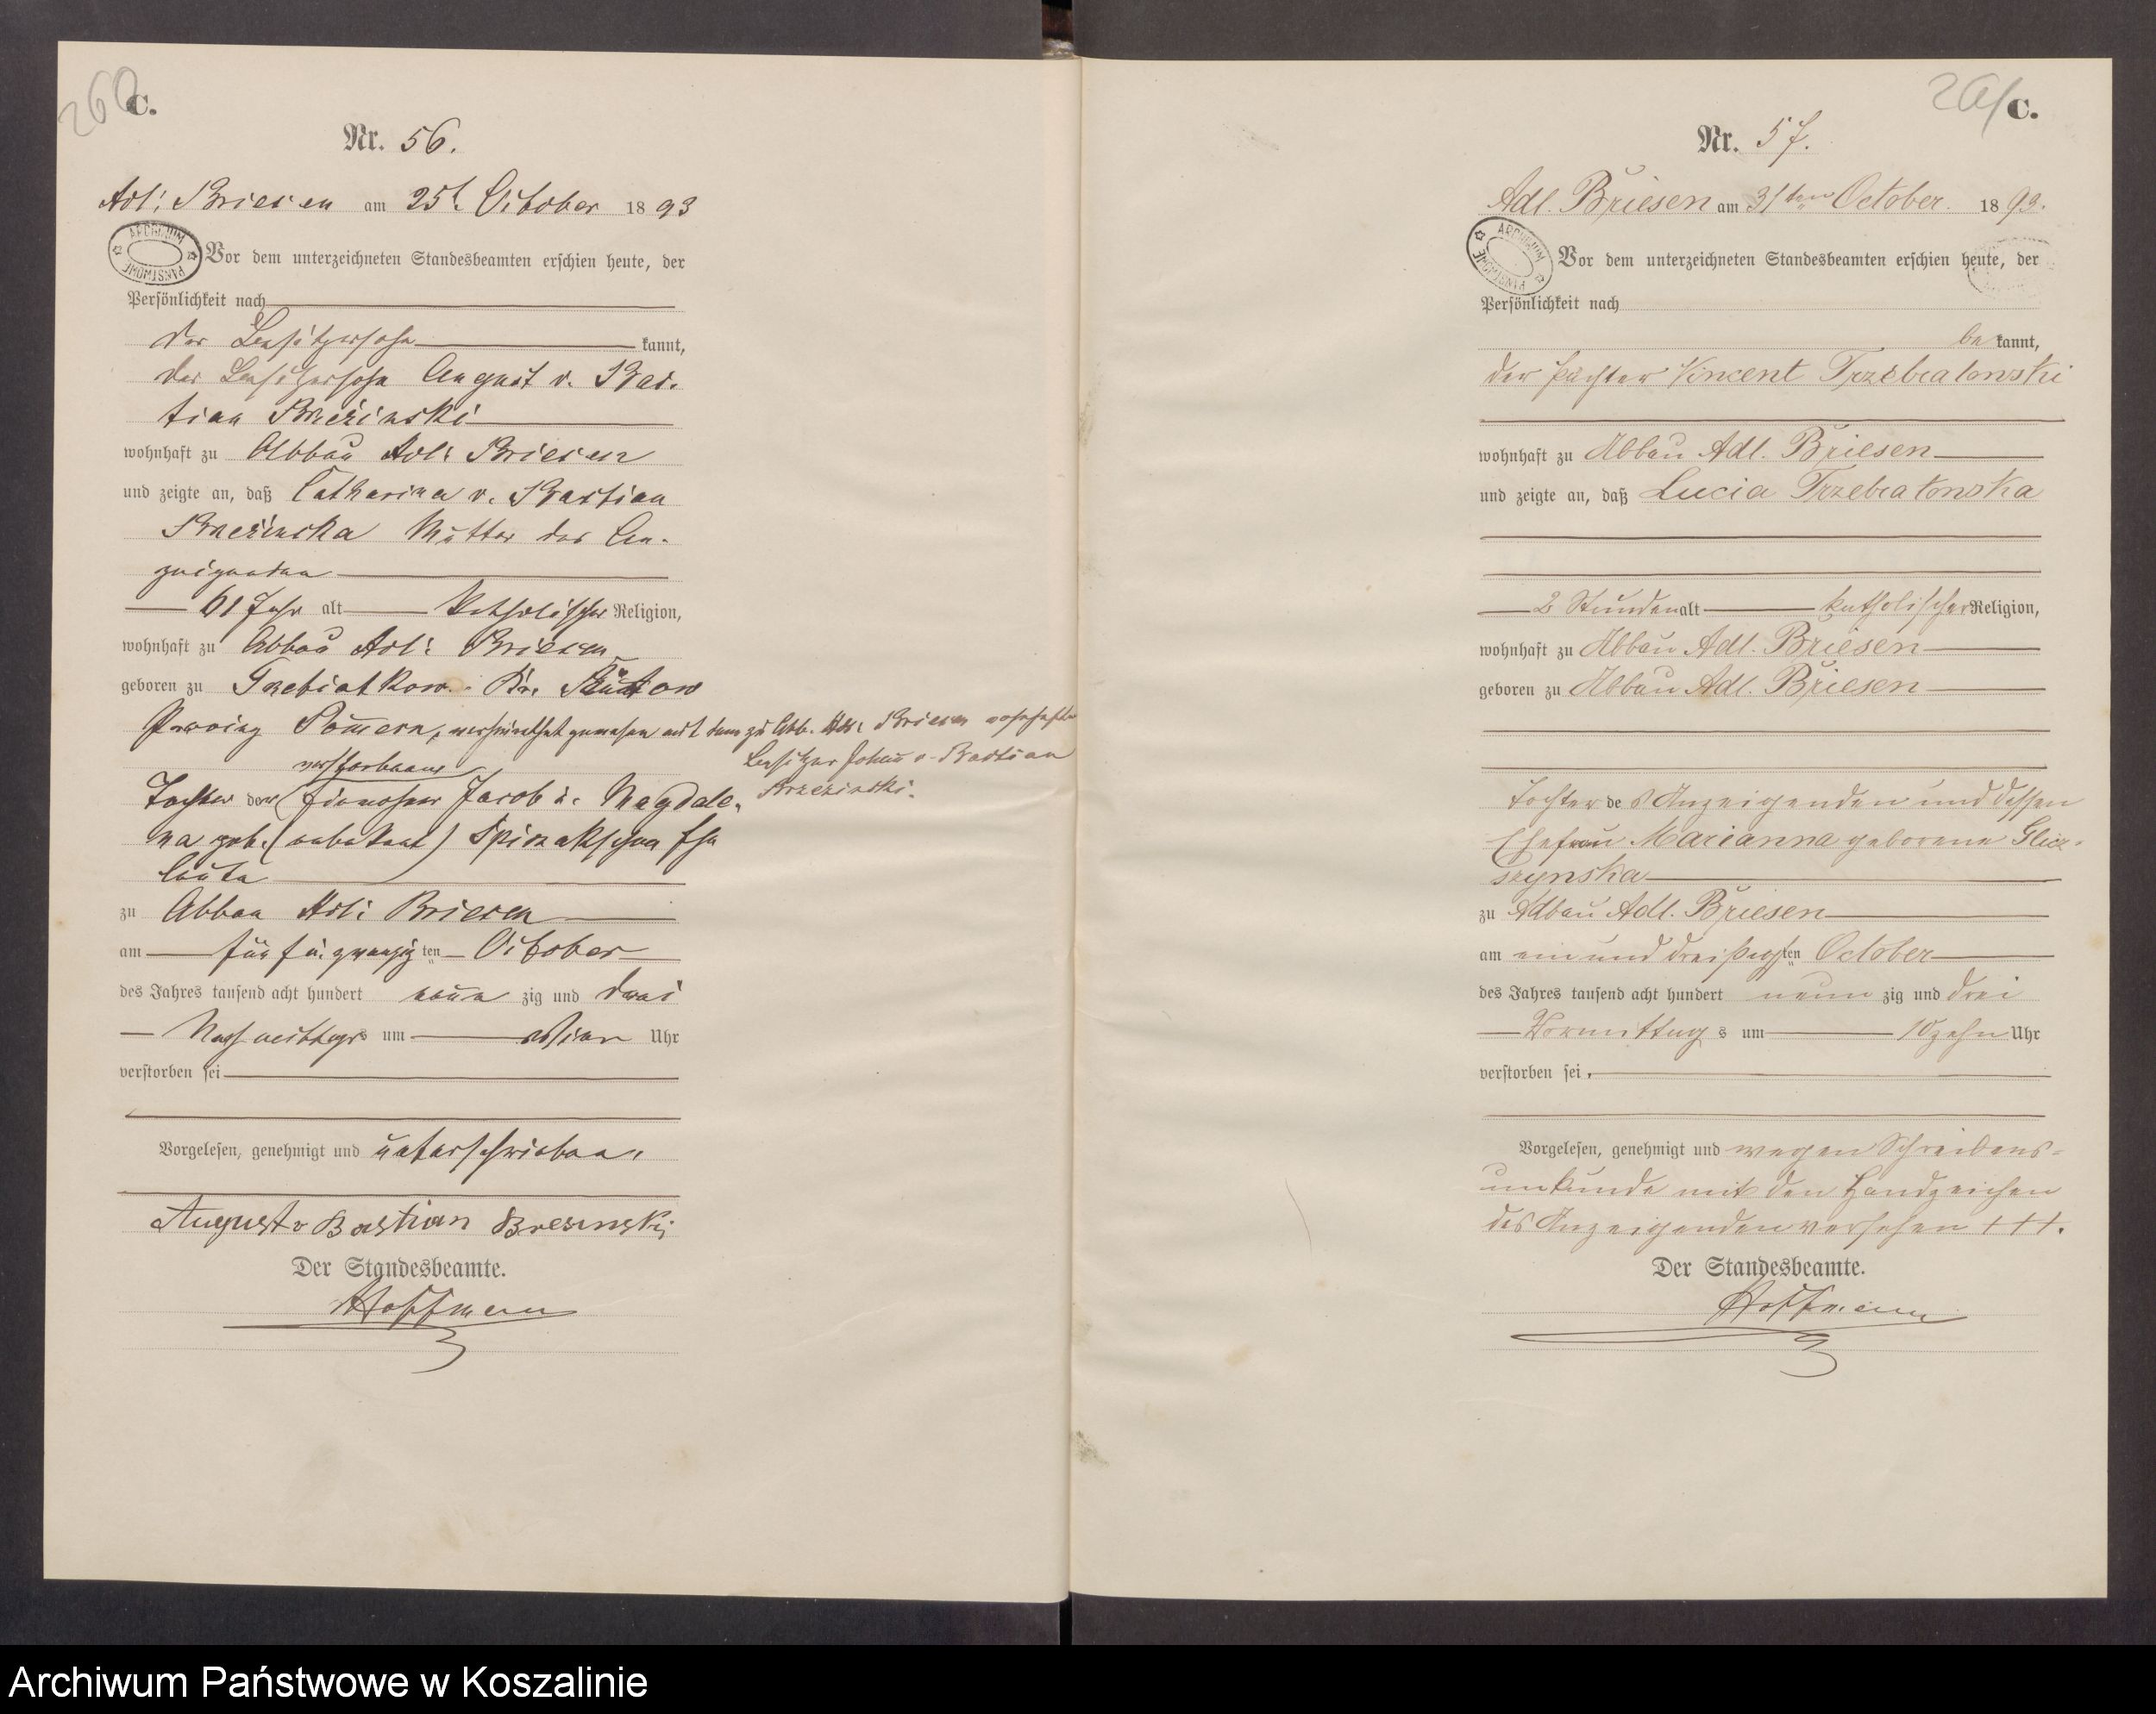 260
C.
Nr. 56.
Adl: Briesen am 25t. October 1893
ARCHIWUM PAŃSTWOWE
Vor dem unterzeichneten Standesbeamten erschien heute, der
Persönlichkeit nach
der Besitzersohn kannt,
der Besitzersohn August v. Bas-
tian Brzezinski
wohnhaft zu Abbau Adl: Briesen
und zeigte an, daß Catharina v. Bastian
Brzezinska Mutter des An-
zeigenden
61 Jahr alt katholischer Religion,
wohnhaft zu Abbau Adl: Briesen
geboren zu Trzebiatkow Kr. Bütow
Provinz Pommern, verheirathet gewesen mit dem zu Abb. Adl: Briesen wohnhaften
Besitzer Johann v. Bastian
Brzezinski.
verstorbenen
Tochter der Einwohner Jacob u. Magdale-
na geb. (unbekannt) Ehe
leute
zu Abbau Adl: Briesen
am fünf u. zwanzigten October
des Jahres tausend acht hundert neun zig und drei
Nachmittags um Uhr
verstorben sei
Vorgelesen, genehmigt und unterschrieben.
August v Bastian Bresinski
Der Standesbeamte.
Hoffmann
261
C.
Nr. 57.
Adl. Briesen am 31ten October. 1893.
ARCHIWUM PAŃSTWOWE
Vor dem unterzeichneten Standesbeamten erschien heute, der
Persönlichkeit nach
be kannt,
der Pächter Vincent Trzebiatowski
wohnhaft zu Abbau Adl. Briesen
und zeigte an, daß Lucia Trzebiatowska
2 Stunden alt katholischer Religion,
wohnhaft zu Abbau Adl. Briesen
geboren zu Abbau Adl. Briesen
Tochter des Anzeigenden und dessen
Ehefrau Marianna geborene
zu Abbau Adl. Briesen
am ein und dreißigsten October
des Jahres tausend acht hundert neun zig und drei
Vormittags um 10 zehn Uhr
verstorben sei.
Vorgelesen, genehmigt und wegen Schreibens-
unkunde mit den Handzeichen
des Anzeigenden versehen +++.
Der Standesbeamte.
Hoffmann
Archiwum Państwowe w Koszalinie